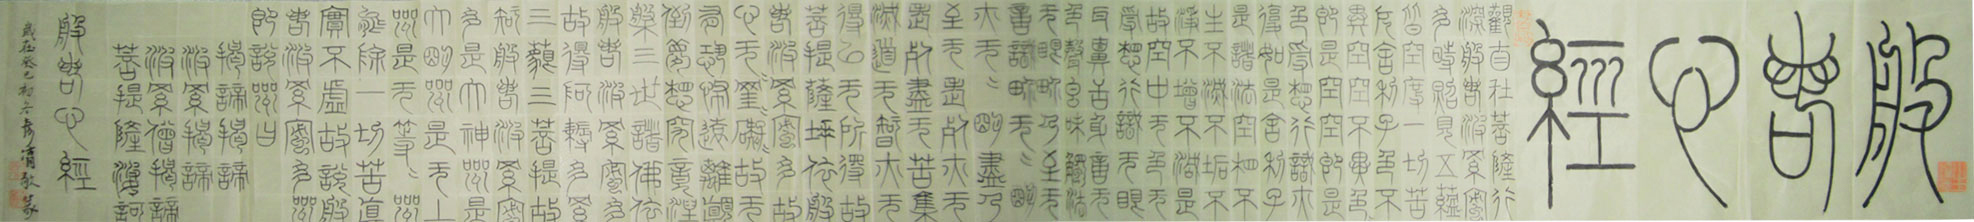 般若心經
觀自在菩薩行
深般若波羅蜜
多時照見五蘊
皆空度一切苦
厄舍利子色不
異空空不異色
即是空空即是
色受想行識亦
復如是舍利子
是諸法空相不
生不滅不垢不
淨不增不減是
故空中无色无
受想行識无眼
耳鼻舌身意无
色聲香味觸法
无眼界乃至无
意識界无〻明
亦无〻明盡乃
至无老死亦无
老死盡无苦集
滅道无智亦无
得以无所得故
菩提薩埵依般
若波羅蜜多故
心无〻罣〻礙〻故无
有恐怖遠離顛
倒夢想究竟涅
槃三世諸佛依
般若波羅蜜多
故得阿耨多羅
三藐三菩提故
知般若波羅蜜
多是大神咒是
大明咒是无上
咒是无等〻咒
能除一切苦真
實不虛故說般
若波羅蜜多咒
即說咒曰
揭諦揭諦
波羅揭諦
波羅僧揭諦
菩提薩婆訶
般若心經
歲在癸巳初冬敬篆